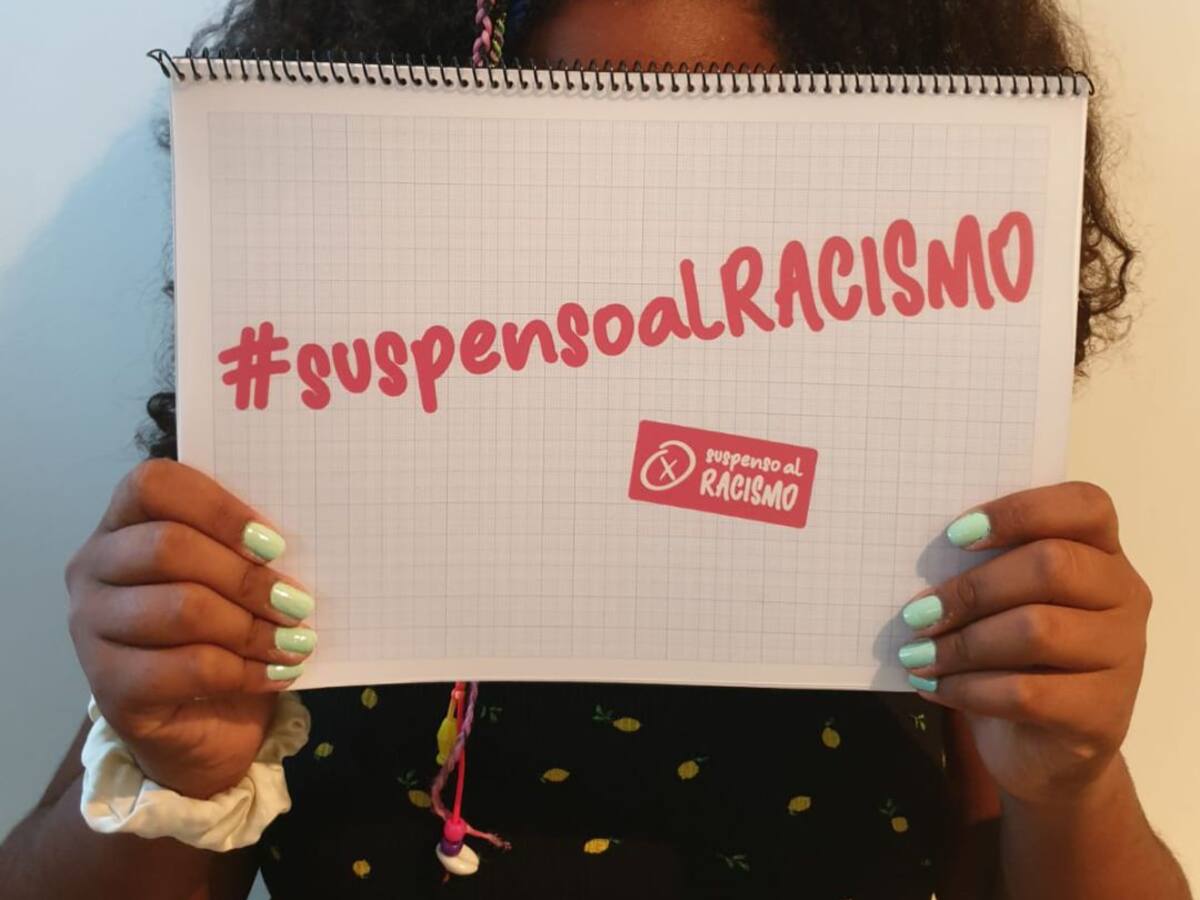 #suspensoalRACISMO
X
suspenso al
RACISMO